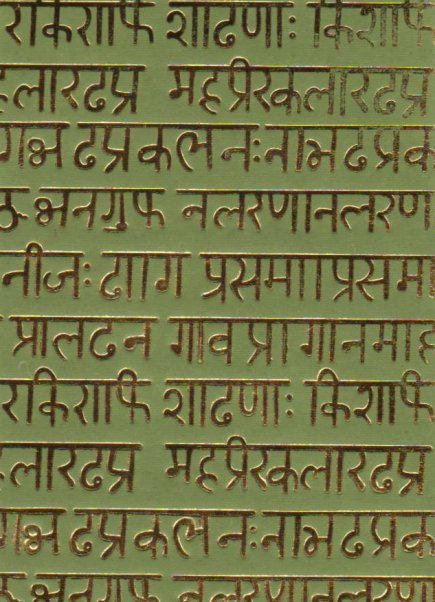 रकिशार्फ शाढणाः किशार्फ
हलारढप्र महप्रीरकलारढप्र
गभ्र ढप्रकलनःनाभढप्रक
भ्रनगुफ नलरणानलरण
नीजः ढााग प्रसमााप्रसमा
प्रालढन गाव प्रा गानमाह
रकिशार्फ शाढणाः किशार्फ
लारढप्र महप्रीरकलारढप्र
गभ्र ढप्रकलनःनाभढप्रक